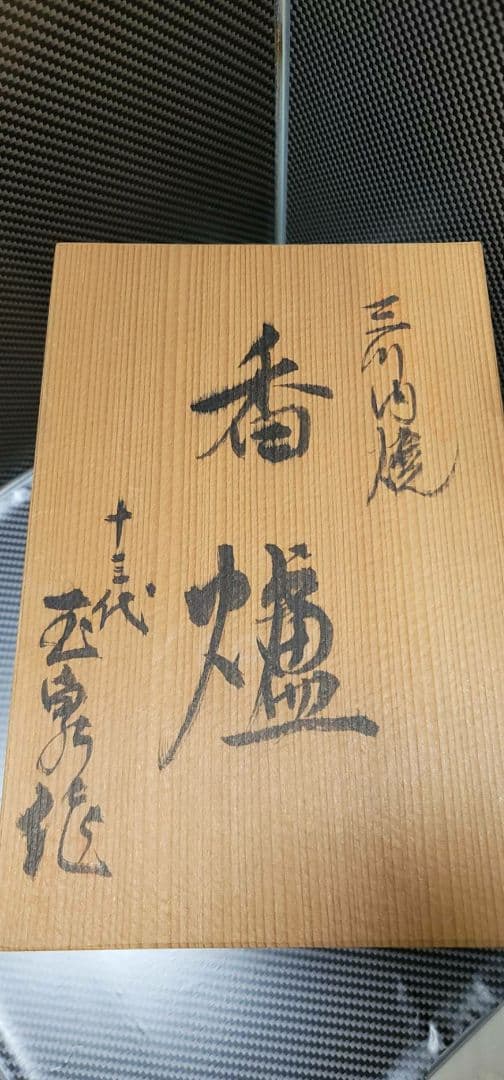 三川内焼
香爐
十三代
玉泉作